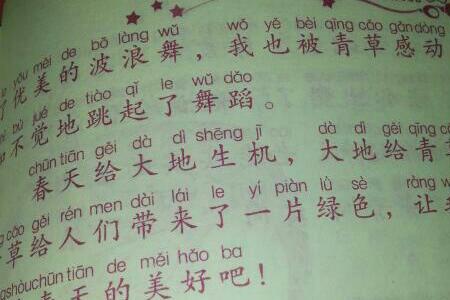 yōu měi de bō làng wǔ wǒ yě bèi qīng cǎo gǎn dòng
了优美的波浪舞，我也被青草感动
bù jué de tiào qǐ le wǔ dǎo
不觉地跳起了舞蹈。
chūn tiān gěi dà dì shēng jī dà dì gěi qīng cǎo
春天给大地生机，大地给青草
cǎo gěi rén men dài lái le yí piàn lǜ sè ràng
草给人们带来了一片绿色，让
shòu chūn tiān de měi hǎo ba
春天的美好吧！